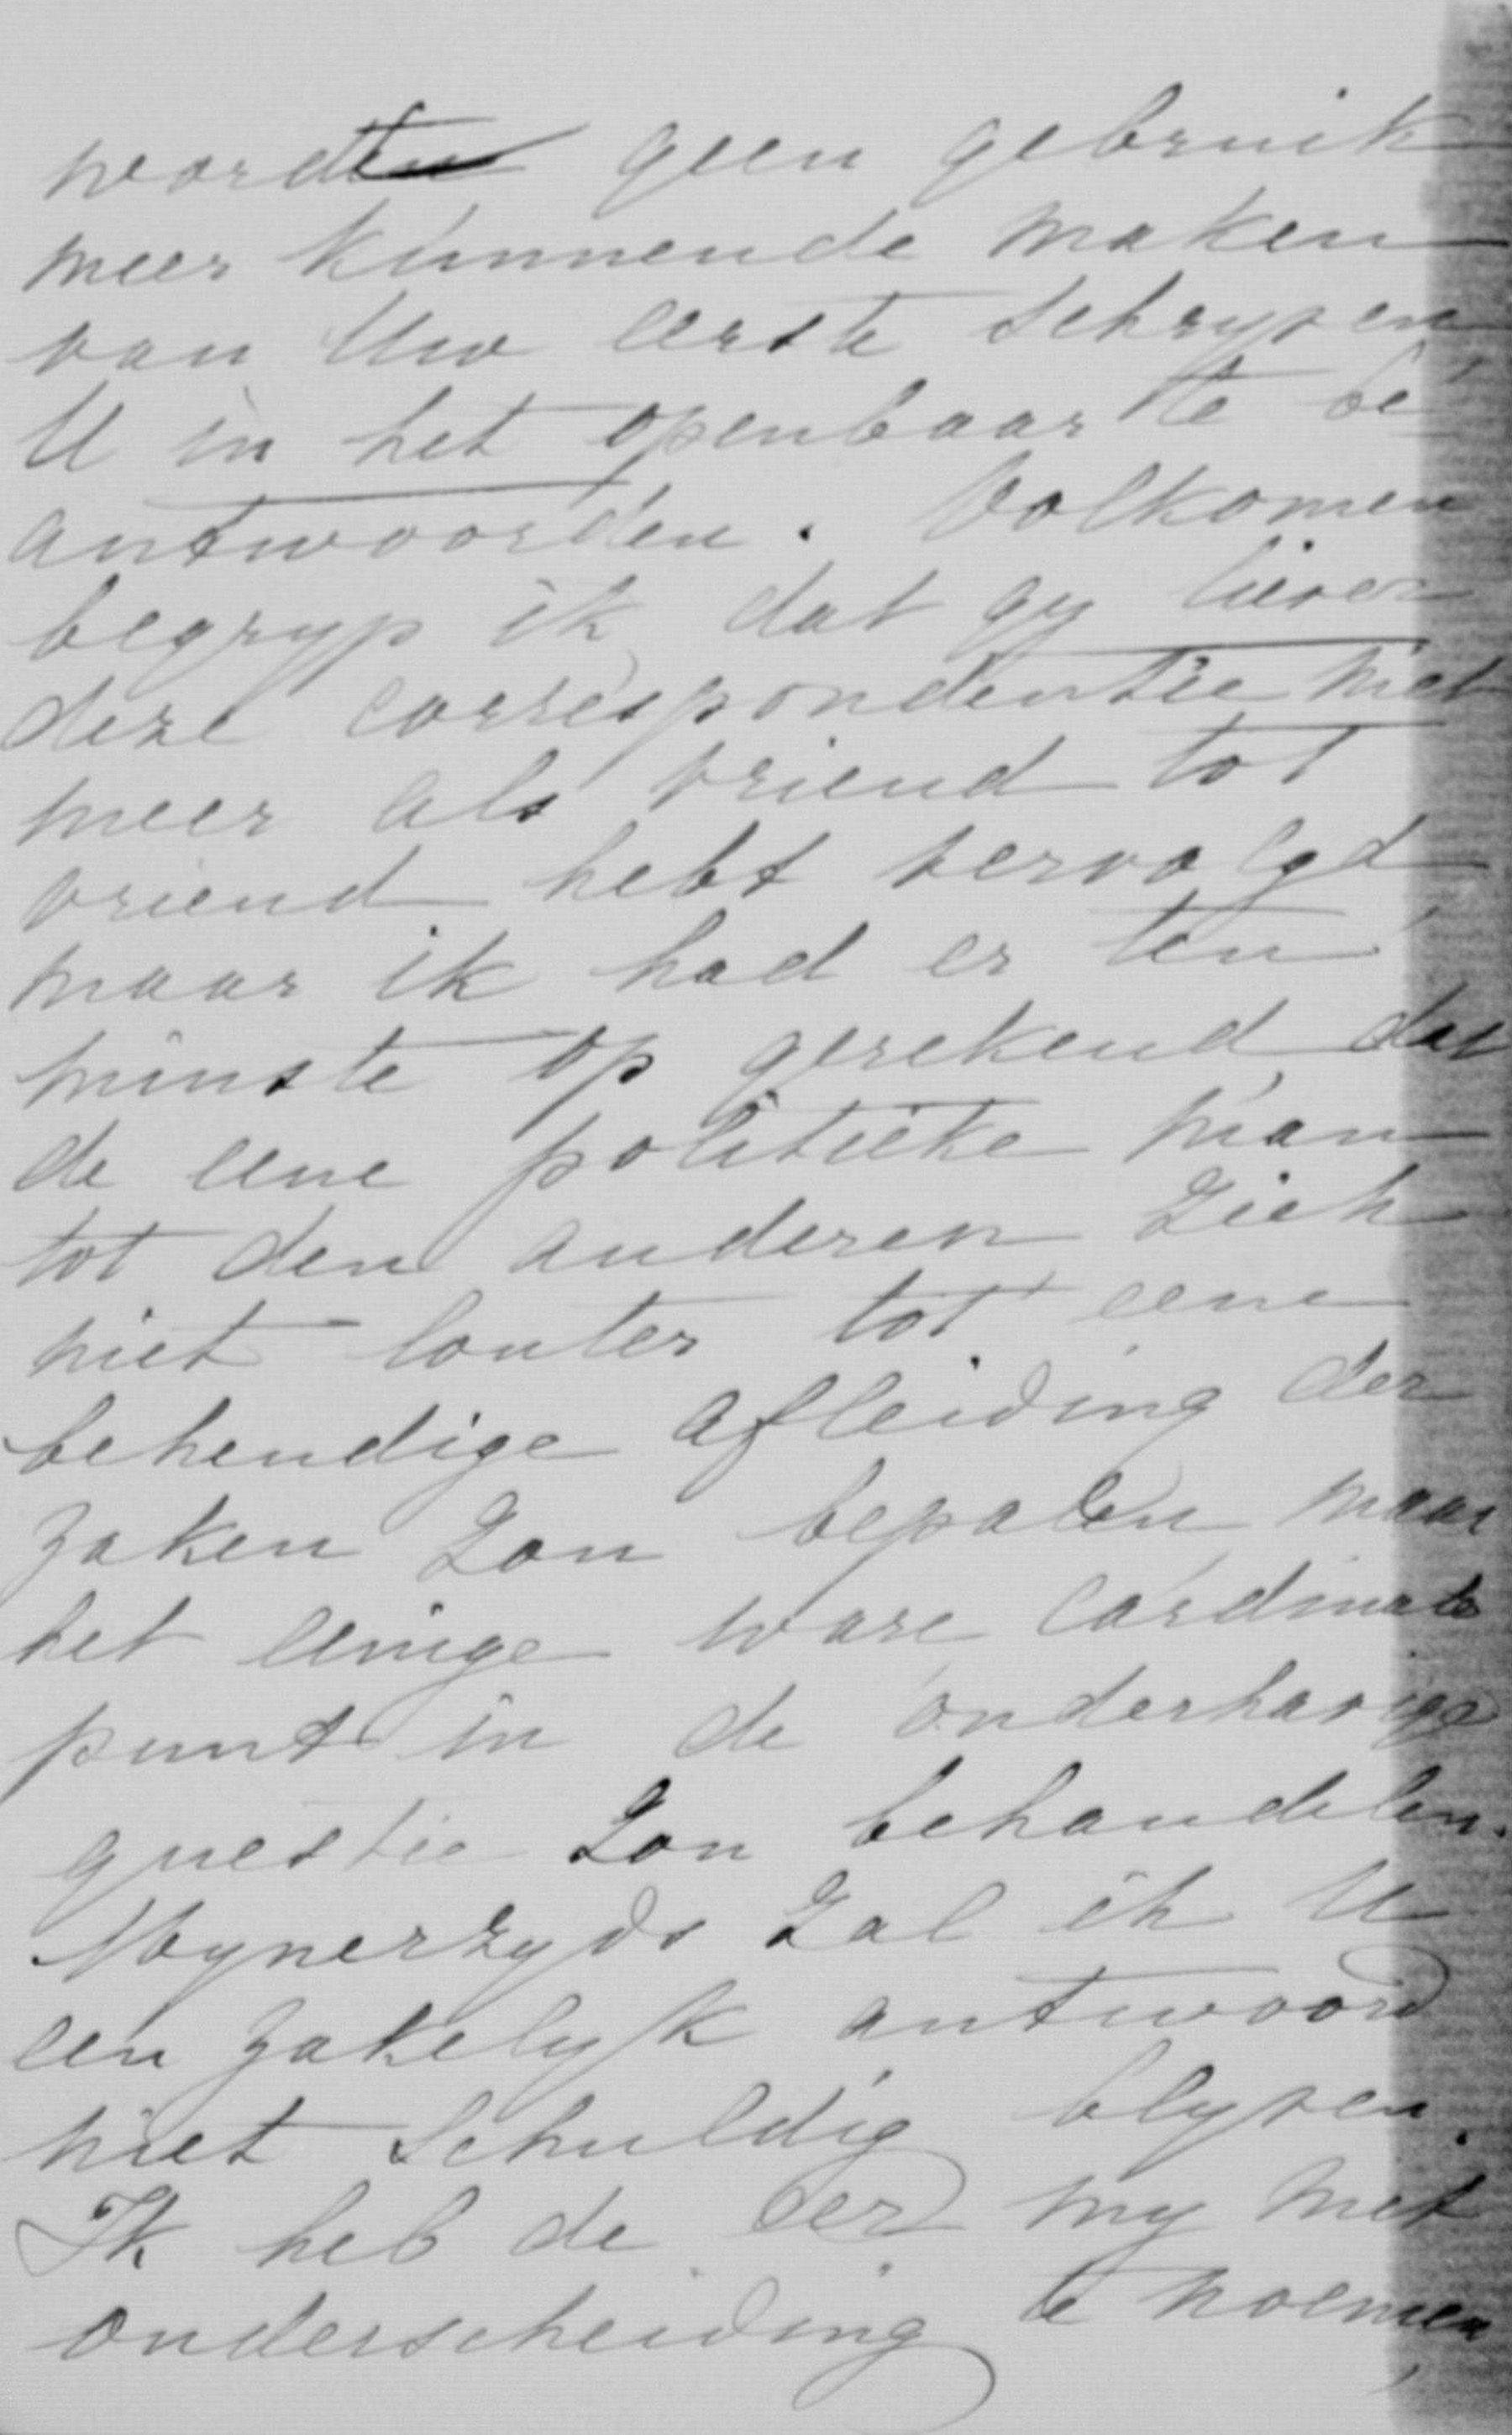 worden geen gebruik
meer kunnende maken
van Uw eerste schryven
U in het openbaar te be
antwoorden. Volkomen
begryp ik dat gy liever
deze correspondentie niet
meer als vriend tot
vriend hebt vervolgd
maar ik had er ten
minste op gerekend dat
de eene politieke man
tot den anderen zich
niet louter tot eene
behendige afleiding der
zaken zou bepalen maar
het eenige ware cardinale
punt in de onderhavige
questie zou behandelen.
Mynerzyds zal ik U
een zakelyk antwoord
niet schuldig blyven.
Ik heb de eer my met
onderscheiding te noemen,